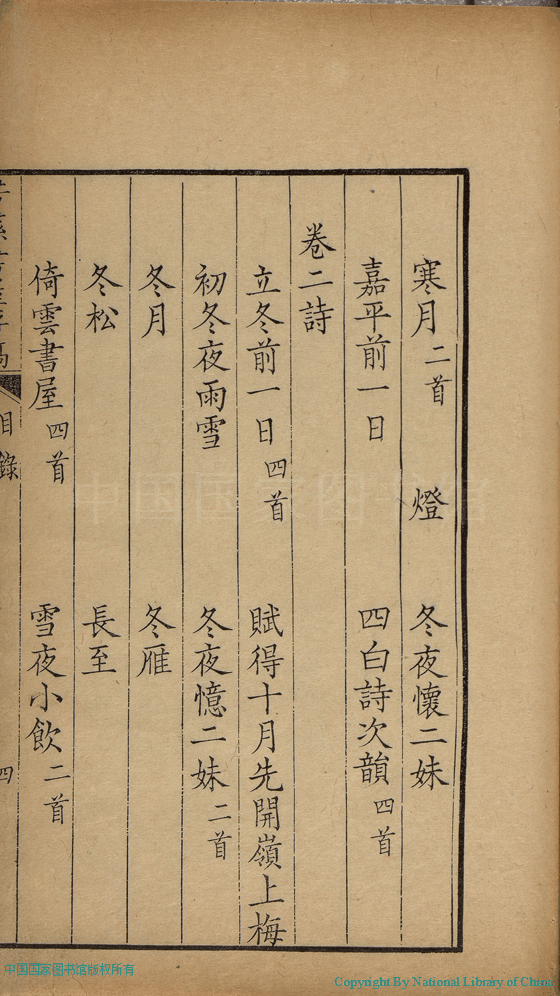 寒月二首　燈　冬夜懷二妹
嘉平前一日　四白詩次韻四首
卷二詩
立冬前一日四首　賦得十月先開嶺上梅
初冬夜雨雪　冬夜憶二妹二首
冬月　冬雁
冬松　長至
倚雲書屋四首　雪夜小飲二首
目錄　四
中国国家图书馆
中国国家图书馆版权所有
Copyright By National Library of China